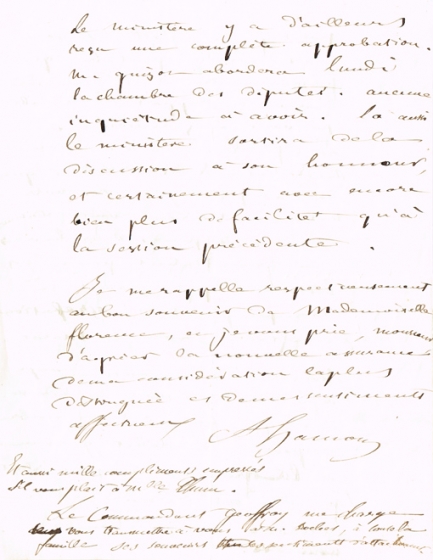 Le ministère y a d'ailleurs
reçu une complète approbation.
M. Guizot abordera lundi
la chambre des députés. aucune
inquiétude à avoir. Là aussi
le ministère sortira de la
discussion à son honneur,
et certainement avec encore
bien plus de facilités qu'à
la session précédente.
Je me rappelle respectueusement
au bon souvenir de Mademoiselle
florence, et je vous prie, monsieur
d'agréer la nouvelle assurance
de ma considération la plus
distinguée et de mes sentiments
affectueux
A Hamon
Et aussi mille compliments empressés
s'il vous plait à Mlle
Le Commandant Geoffroy me charge
vous transmettre à vous à toute la
famille ses souvenirs